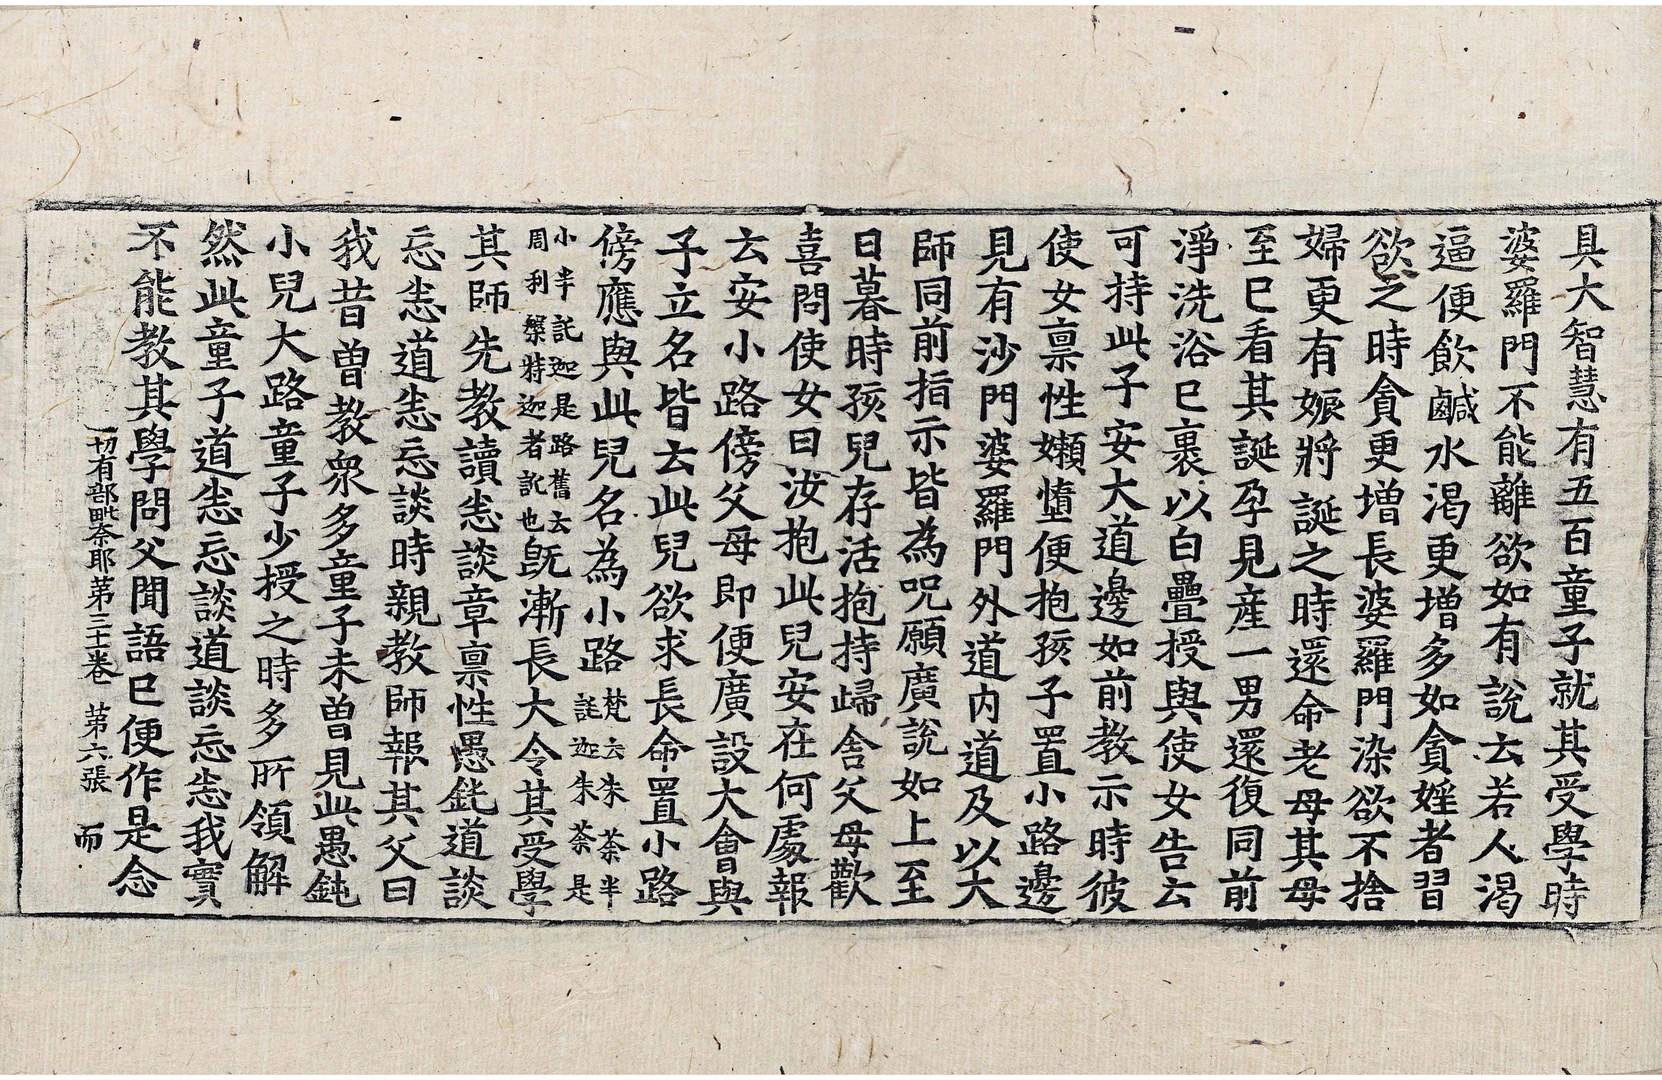 具大智慧有五百童子就其受學時
婆羅門不能離欲如有說去若人渴
逼便飲鹹水渴更增多如貪婬者習
欲之時貪更增長婆羅門染欲不捨
婦更有娠將誕之時還命老母其母
至已看其誕孕見産一男還復同前
淨洗浴已裹以白疊授與使女告云
可持此子安大道邊如前教示時彼
使女禀性嬾墮便抱孩子置小路邊
見有沙門婆羅門外道内道及以大
師同前指示皆為呪願廣說如上至
日暮時孩兒存活抱持歸舍父母歡
喜問使女曰汝抱此兒安在何處報
云安小路傍父母即便廣設大會與
子立名皆云此兒欲求長命置小路
傍應與此兒名為小路梵云朱荼半託迦朱荼是
小半託迦是路舊云周利槃特迦者訛也既漸長大令其受學
其師先教讀悉談章禀性愚鈍道談
忘悉道悉忘談時親教師報其父曰
我昔曾教衆多童子未曾見此愚鈍
小兒大路童子少授之時多所領解
然此童子道悉忘談道談忘悉我實
不能教其學問父聞語已便作是念
一切有部毗奈耶第三十一卷 第六張 而